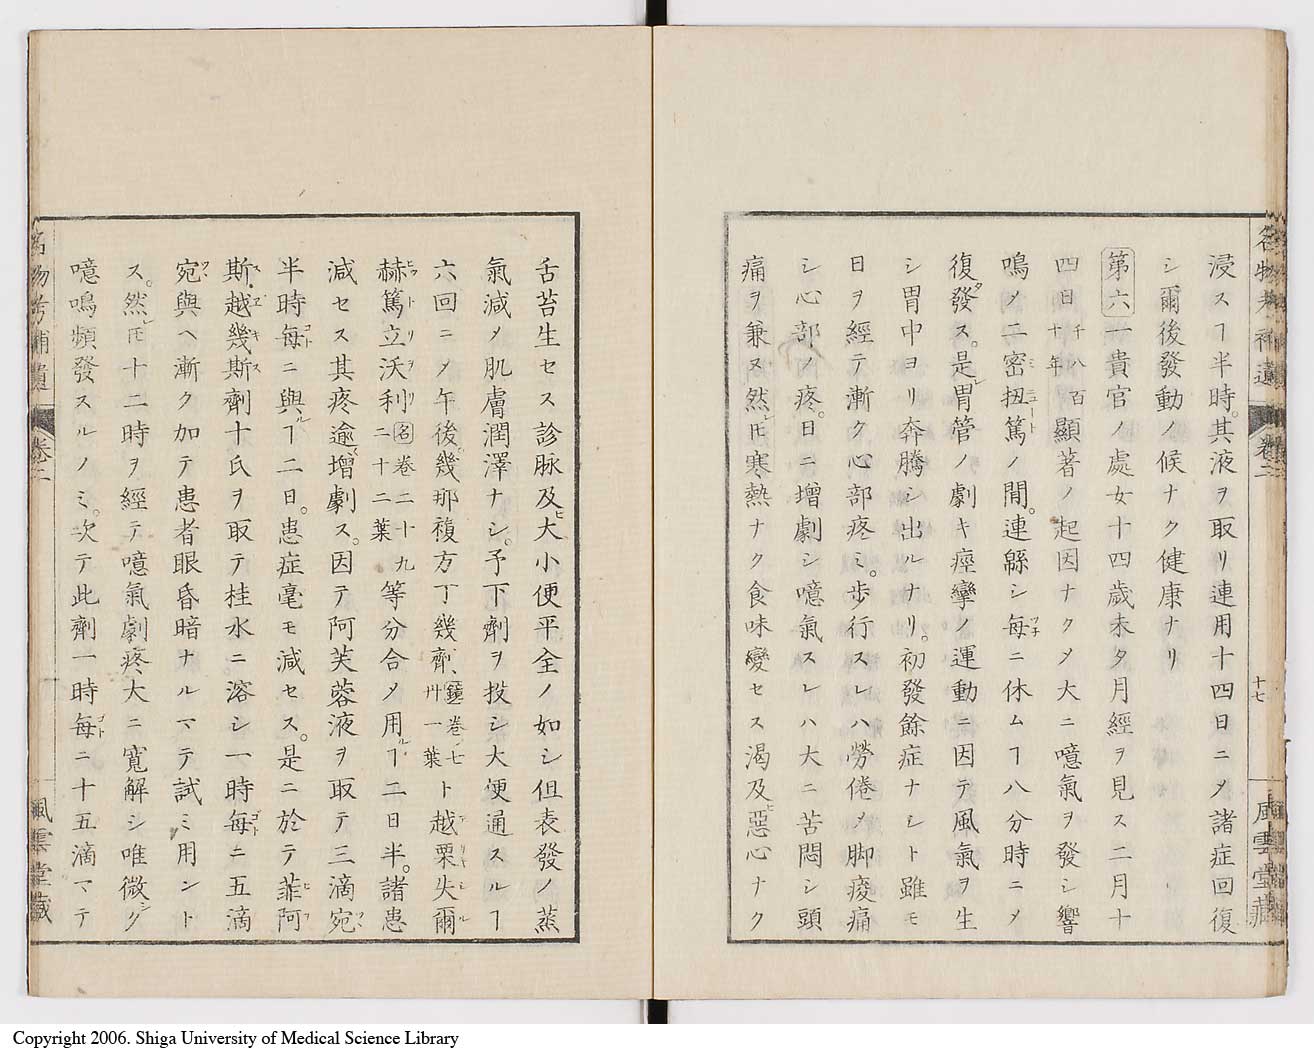 浸スヿ半時。其液ヲ取リ連用十四日ニメ諸症回復
シ爾後發動ノ候ナク健康ナリ
第六 一貴官ノ處女十四歳未タ月經ヲ見ス二月十
四日千八百十年顯著ノ起因ナクメ大ニ噫氣ヲ發シ響
鳴ノ二密扭篤ミニュートノ間。連緜シ每ニ休ムヿ八分時ニメ
復發ス。是レ胃管ノ劇キ痙攣ノ運動ニ因テ風氣ヲ生
シ胃中ヨリ奔騰シ出ルナリ。初發餘症ナシト雖モ
日ヲ經テ漸ク心部疼ミ。歩行スレハ勞倦メ脚痠痛
シ心部ノ疼。日ニ增劇シ噫氣スレハ大ニ苦悶シ頭
痛ヲ兼ヌ然レ𪜈寒熱ナク食味變セス渇及ヒ惡心ナク
舌苔生セス診脉及ヒ大小便平全ノ如シ但表發ノ蒸
氣減メ肌膚潤澤ナシ。予下劑ヲ投シ大便通スルヿ
六回ニメ午後。幾那複方丁幾劑、鐘卷ノ七卅一葉ト越栗失爾
赫篤立沃利ヒフトリヲリ名卷二十九二十二葉等分合メ用ルヿ二日半。諸患
減セス其疼逾增劇ス。因テ阿芙蓉液ヲ取テ三滴宛
半時每ゴトニ與ルヿ二日。患症毫モ減セス。是ニ於テ菲阿
斯越幾斯劑十氏ヲ取テ桂水ニ溶シ一時每ゴトニ五滴
宛與ヘ漸ク加テ患者眼昏暗ナルマテ試ミ用ント
ス。然レ𪜈十二時ヲ經テ噫氣劇疼大ニ寬解シ唯微シク
噫鳴頻發スルノミ。次テ此劑一時每ゴトニ十五滴マテ
名物考補遺 卷二 十七 風雲堂藏
名物考補遺 卷二 風雲堂藏
Copyright 2006. Shiga University of Medical Science Library